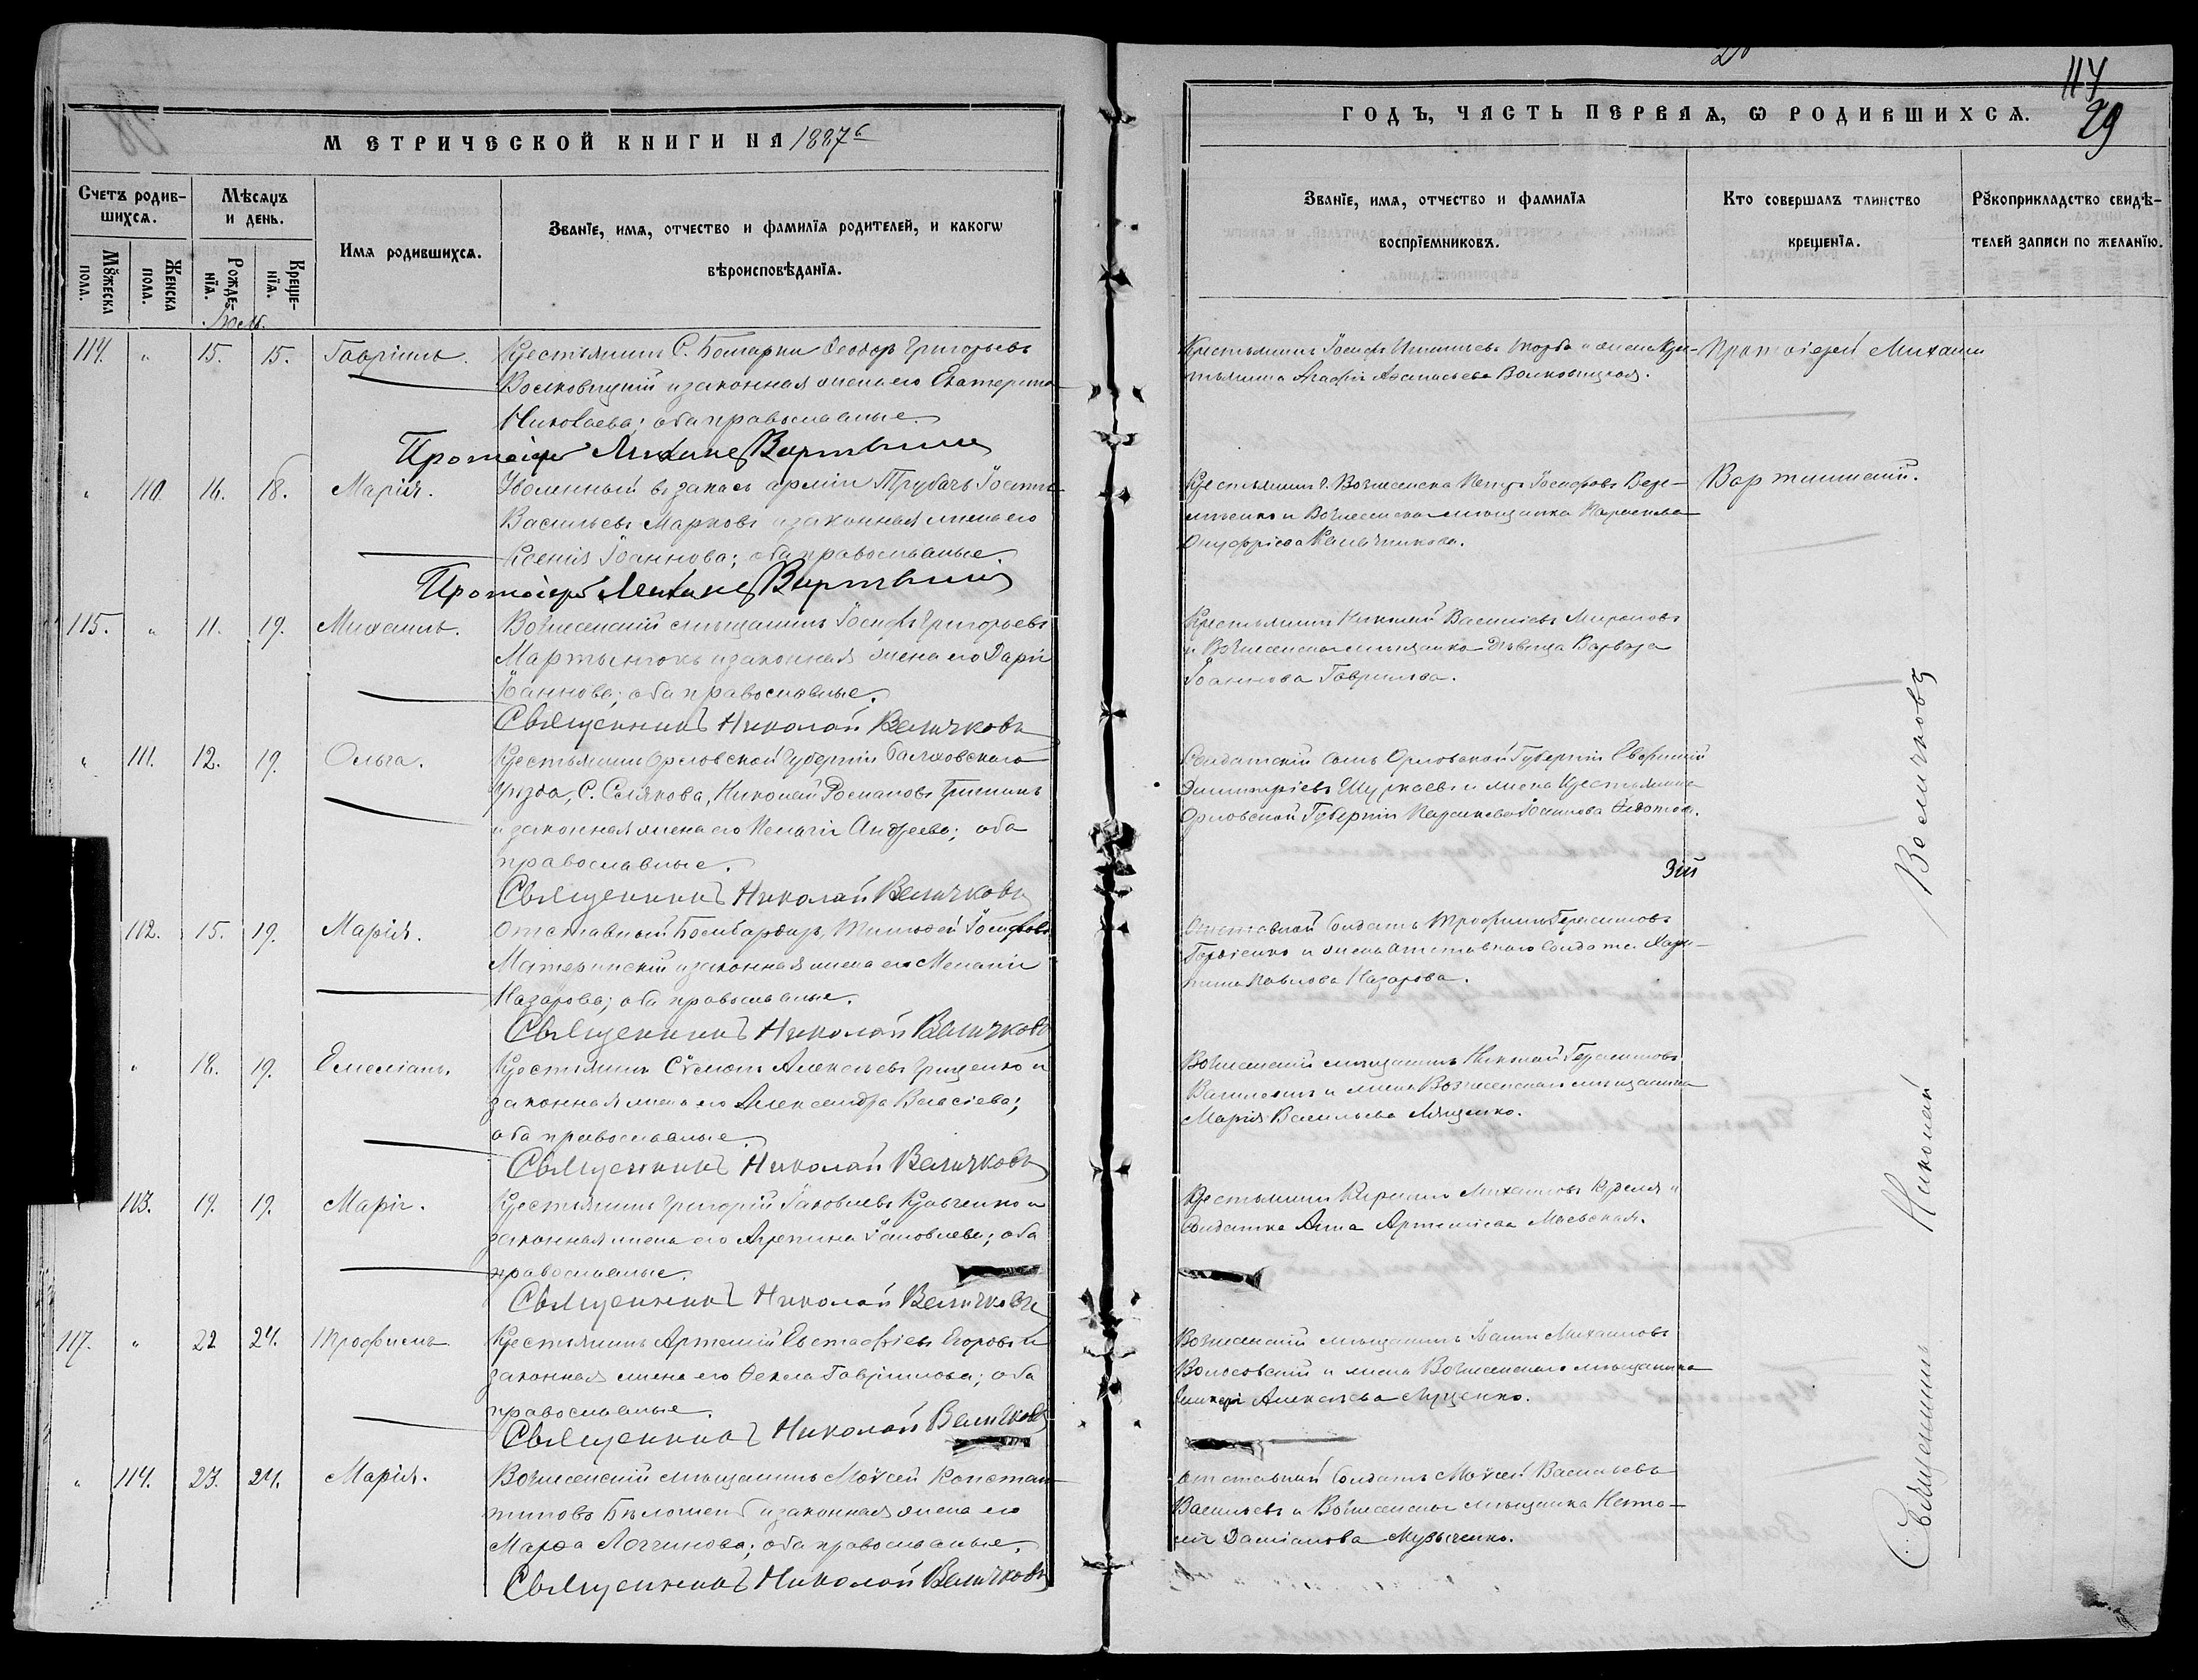 МЕТРИЧЕСКОЙ КНИГИ НА 1887 г
Счетъ родив-
шихся.
Мѣсяцъ
и день.
Имя родившихся.
Званїе, имя, отчество и фамилїя родителей, и какогѡ
вѣроисповѣданїя.
Мꙋжеска
пола.
Женска
пола.
Рожде-
нїя.
Креще-
нїя.
114. " 15. 15. Гавріилъ. Крестьянинъ С. Болгарки Ѳеодоръ Григорьевъ
Волковицкій и законная жена его Екатерина
Николаева; оба православные.
Протоіерей Михаилъ
" 110. 16. 18. Марія. Уволенный въ запасъ арміи Трубачъ Іоаннъ
Васильевъ Марковъ и законная жена его
Ксенія Іоаннова; оба православные.
Протоіерей Михаилъ
115. " 11. 19. Михаилъ. Вознесенскій мѣщанинъ Іосифъ Григорьевъ
Мартынюкъ и законная жена его Дарія
Іоаннова; оба православные.
Священникъ Николай Величковъ
" 111. 12. 19. Ольга. Крестьянинъ Орловской Губерніи Болховскаго
уѣзда, С. Селякова, Николай Романовъ Гришинъ
и законная жена его Пелагія Андреева; оба
православные.
Священникъ Николай Величковъ
112. 15. 19. Марія. Отставный Бомбардиръ, Тимоѳей Іосифовъ
Материнскій и законная жена его Меланія
Назарова; оба православные.
Священникъ Николай Величковъ
" 18. 19. Емеліанъ. Крестьянинъ Сѵмеонъ Алексѣевъ Грищенко и
законная жена его Александра Власіева;
оба православные.
Священникъ Николай Величковъ
113. 19. 19. Марія. Крестьянинъ Григорій Іаковлевъ Кравченко и
законная жена его Агрепина Іаковлева; оба
православные.
Священникъ Николай Величковъ
117. " 22 24. Трофимъ Крестьянинъ Артемій Евстафіевъ Егоровъ и
законная жена его Ѳекла Гавріилова; оба
православные.
Священникъ Николай Величковъ
" 114. 23. 24. Марія. Вознесенскій мѣщанинъ Моѵсей Констан-
тиновъ и законная жена его
Марѳа Логгинова; оба православные.
Священникъ Николай Величковъ
114
29
ГОДЪ, ЧАСТЬ ПЕРВАЯ, Ѡ РОДИВШИХСЯ.
Званїе, имя, отчество и фамилїя
воспрїемниковъ.
Кто совершалъ таинство
крещенїя.
Рꙋкоприкладство свидѣ-
телей записи по желанїю.
Крестьянинъ Іосифъ и жена Кре-
стьянина Агафія Аѳанасьева Волковицкая.
Протоіерей Михаилъ
Крестьянинъ г. Вознесенска Петръ Іосифовъ
и Вознесенская мѣщанка Параскева
Онуфріева Калачникова.
Крестьянинъ Николай Васильевъ Мироновъ
и Вознесенская мѣщанка дѣвица Варвара
Іоаннова Гаврилова.
Солдатскій сынъ Орловской Губерніи
Димитріевъ и жена Крестьянина
Орловской Губерніи Параскева Іоаннова Ѳедотова.
Отставной Солдатъ Трофимъ Герасимовъ
и жена отставнаго Солдата Хари-
тина Павлова Назарова.
Вознесенскій мѣщанинъ Николай Герасимовъ
и жена Вознесенскаго мѣщанина
Марія Васильева Лященко.
Крестьянинъ Кириллъ Михаиловъ и
Солдатка Анна Артеміева
Вознесенскій мѣщанинъ Іоаннъ Михаиловъ
Волосовскій и жена Вознесенскаго мѣщанина
Гликерія Алексѣева Луценко.
Отставный Солдатъ Моѵсей Васильевъ
Васильевъ и Вознесенская мѣщанка Ната-
лія Даміанова Музыченко.
Священникъ Николай Величковъ